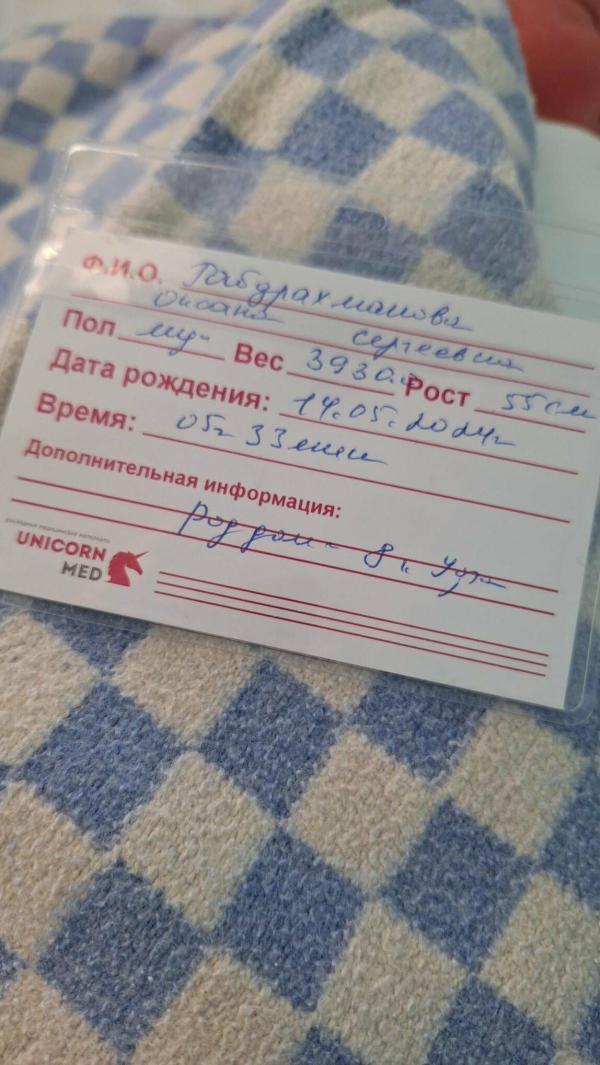 Ф.И.О. Габдрахманова
Оксана Сергеевна
Пол муж Вес 3930 г Рост 55 см
Дата рождения: 14.05.2024г
Время: 05ч 33мин
Дополнительная информация:
роддом 8 г. Уфа
UNICORN
MED